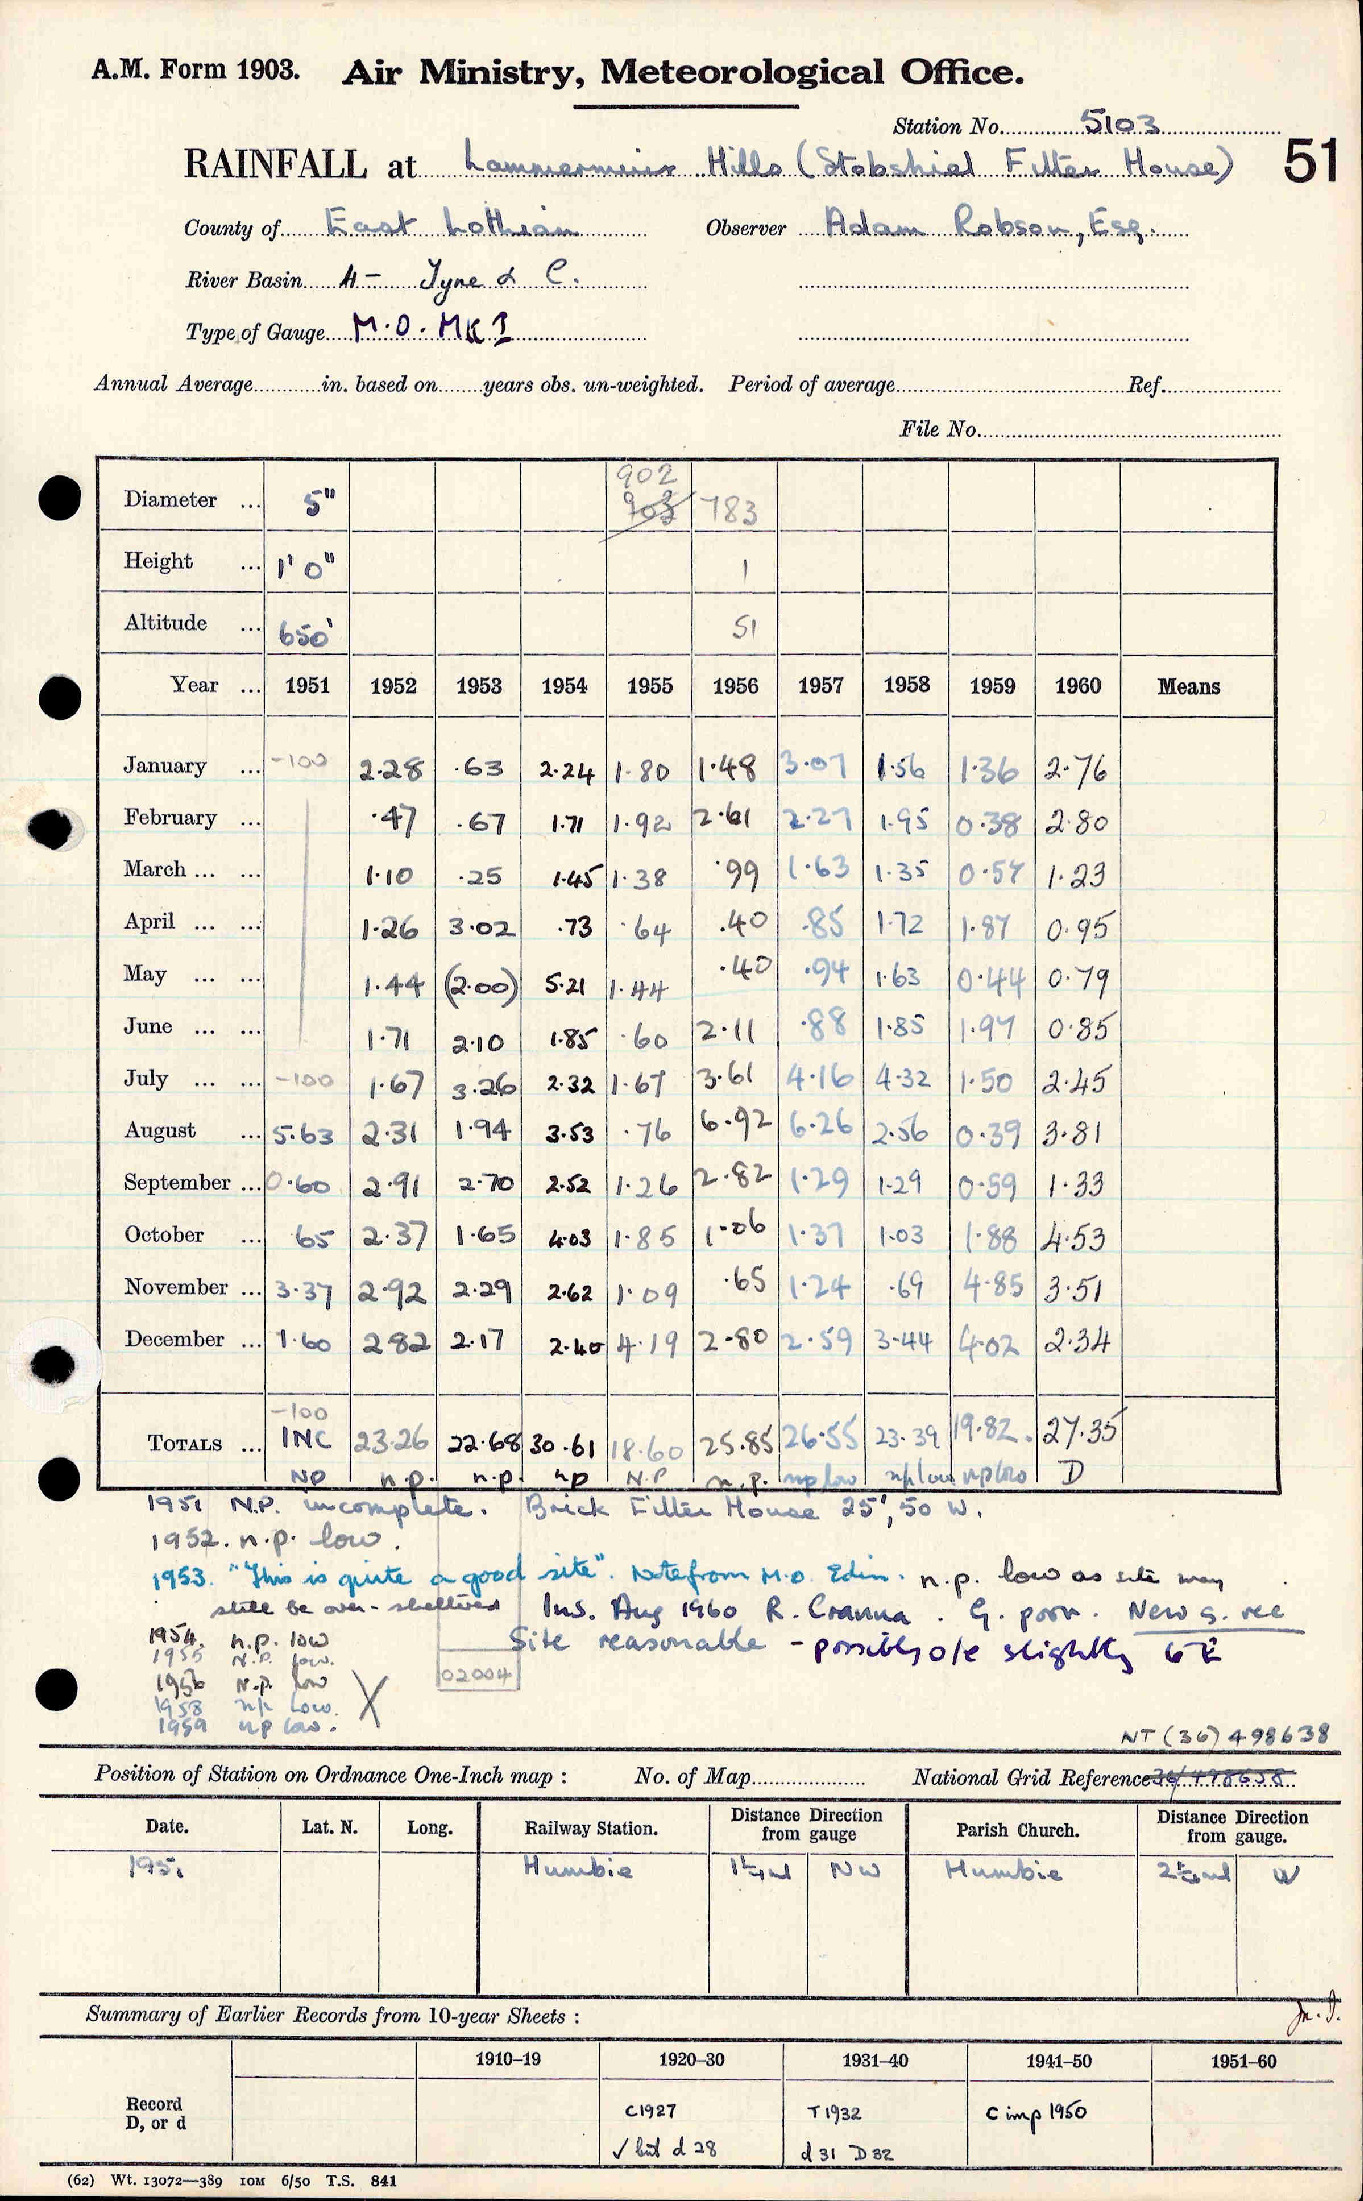 A.M. Form 1903. Air Ministry, Meteorological Office.
Station No. 5103
RAINFALL at Lammermuir Hills (Stobshiel Filter House) 51
County of East Lothian Observer Adam Robson, Esq.
River Basin 4 - Tyne & C.
Type of Gauge M.O. MK I
Annual Average in. based on years obs. un-weighted. Period of average Ref.
File No.
902
Diameter ... 5" 903 783
Height ... 1' 0" 1
Altitude ... 650' 51
Year ... 1951 1952 1953 1954 1955 1956 1957 1958 1959 1960 Means
January ... -100 2.28 .63 2.24 1.80 1.48 3.07 1.56 1.36 2.76
February ... .47 .67 1.71 1.92 2.61 2.27 1.95 0.38 2.80
March ... ... 1.10 .25 1.45 1.38 .99 1.63 1.35 0.57 1.23
April ... ... 1.26 3.02 .73 .64 .40 .85 1.72 1.87 0.95
May ... ... 1.44 (2.00) 5.21 1.44 .40 .94 1.63 0.44 0.79
June ... ... 1.71 2.10 1.85 .60 2.11 .88 1.85 1.97 0.85
July ... ... -100 1.67 3.26 2.32 1.67 3.61 4.16 4.32 1.50 2.45
August ... 5.63 2.31 1.94 3.53 .76 6.92 6.26 2.56 0.39 3.81
September ... 0.60 2.91 2.70 2.52 1.26 2.82 1.29 1.29 0.59 1.33
October ... 65 2.37 1.65 4.03 1.85 1.06 1.37 1.03 1.88 4.53
November ... 3.37 2.92 2.29 2.62 1.09 .65 1.24 .69 4.85 3.51
December ... 1.60 2.82 2.17 2.40 4.19 2.80 2.59 3.44 4.02 2.34
-100
Totals ... INC 23.26 22.68 30.61 18.60 25.85 26.55 23.39 19.82. 27.35
NP n.p. n.p. np N.P n.p. np low np low np low D
1951 N.P. incomplete. Brick Filter House 25', 50 W.
1952. n.p. low.
1953. "This is quite a good site". Note from M.O. Edin. n.p. low as site may
still be over-sheltered Ins. Aug 1960 R. Cranna. G. poor. New g. rec
1954. n.p. low Site reasonable - possibly o/e slightly to E
1955 N.P. low.
1956 N.P. low 02004
1958 np Low. X
1959 np low.
NT (36) 498638
Position of Station on Ordnance One-Inch map : No. of Map National Grid Reference 36/498638
Date. Lat. N. Long. Railway Station. Distance Direction from gauge Parish Church. Distance Direction from gauge.
1951 Humbie 1¼ml NW Humbie 2½ml W
Summary of Earlier Records from 10-year Sheets :
1910–19 1920–30 1931–40 1941–50 1951–60
Record C1927 T1932 C imp 1950
D, or d ✓ but d 28 d 31 D 32
(62) Wt. 13072—389 IOM 6/50 T.S. 841